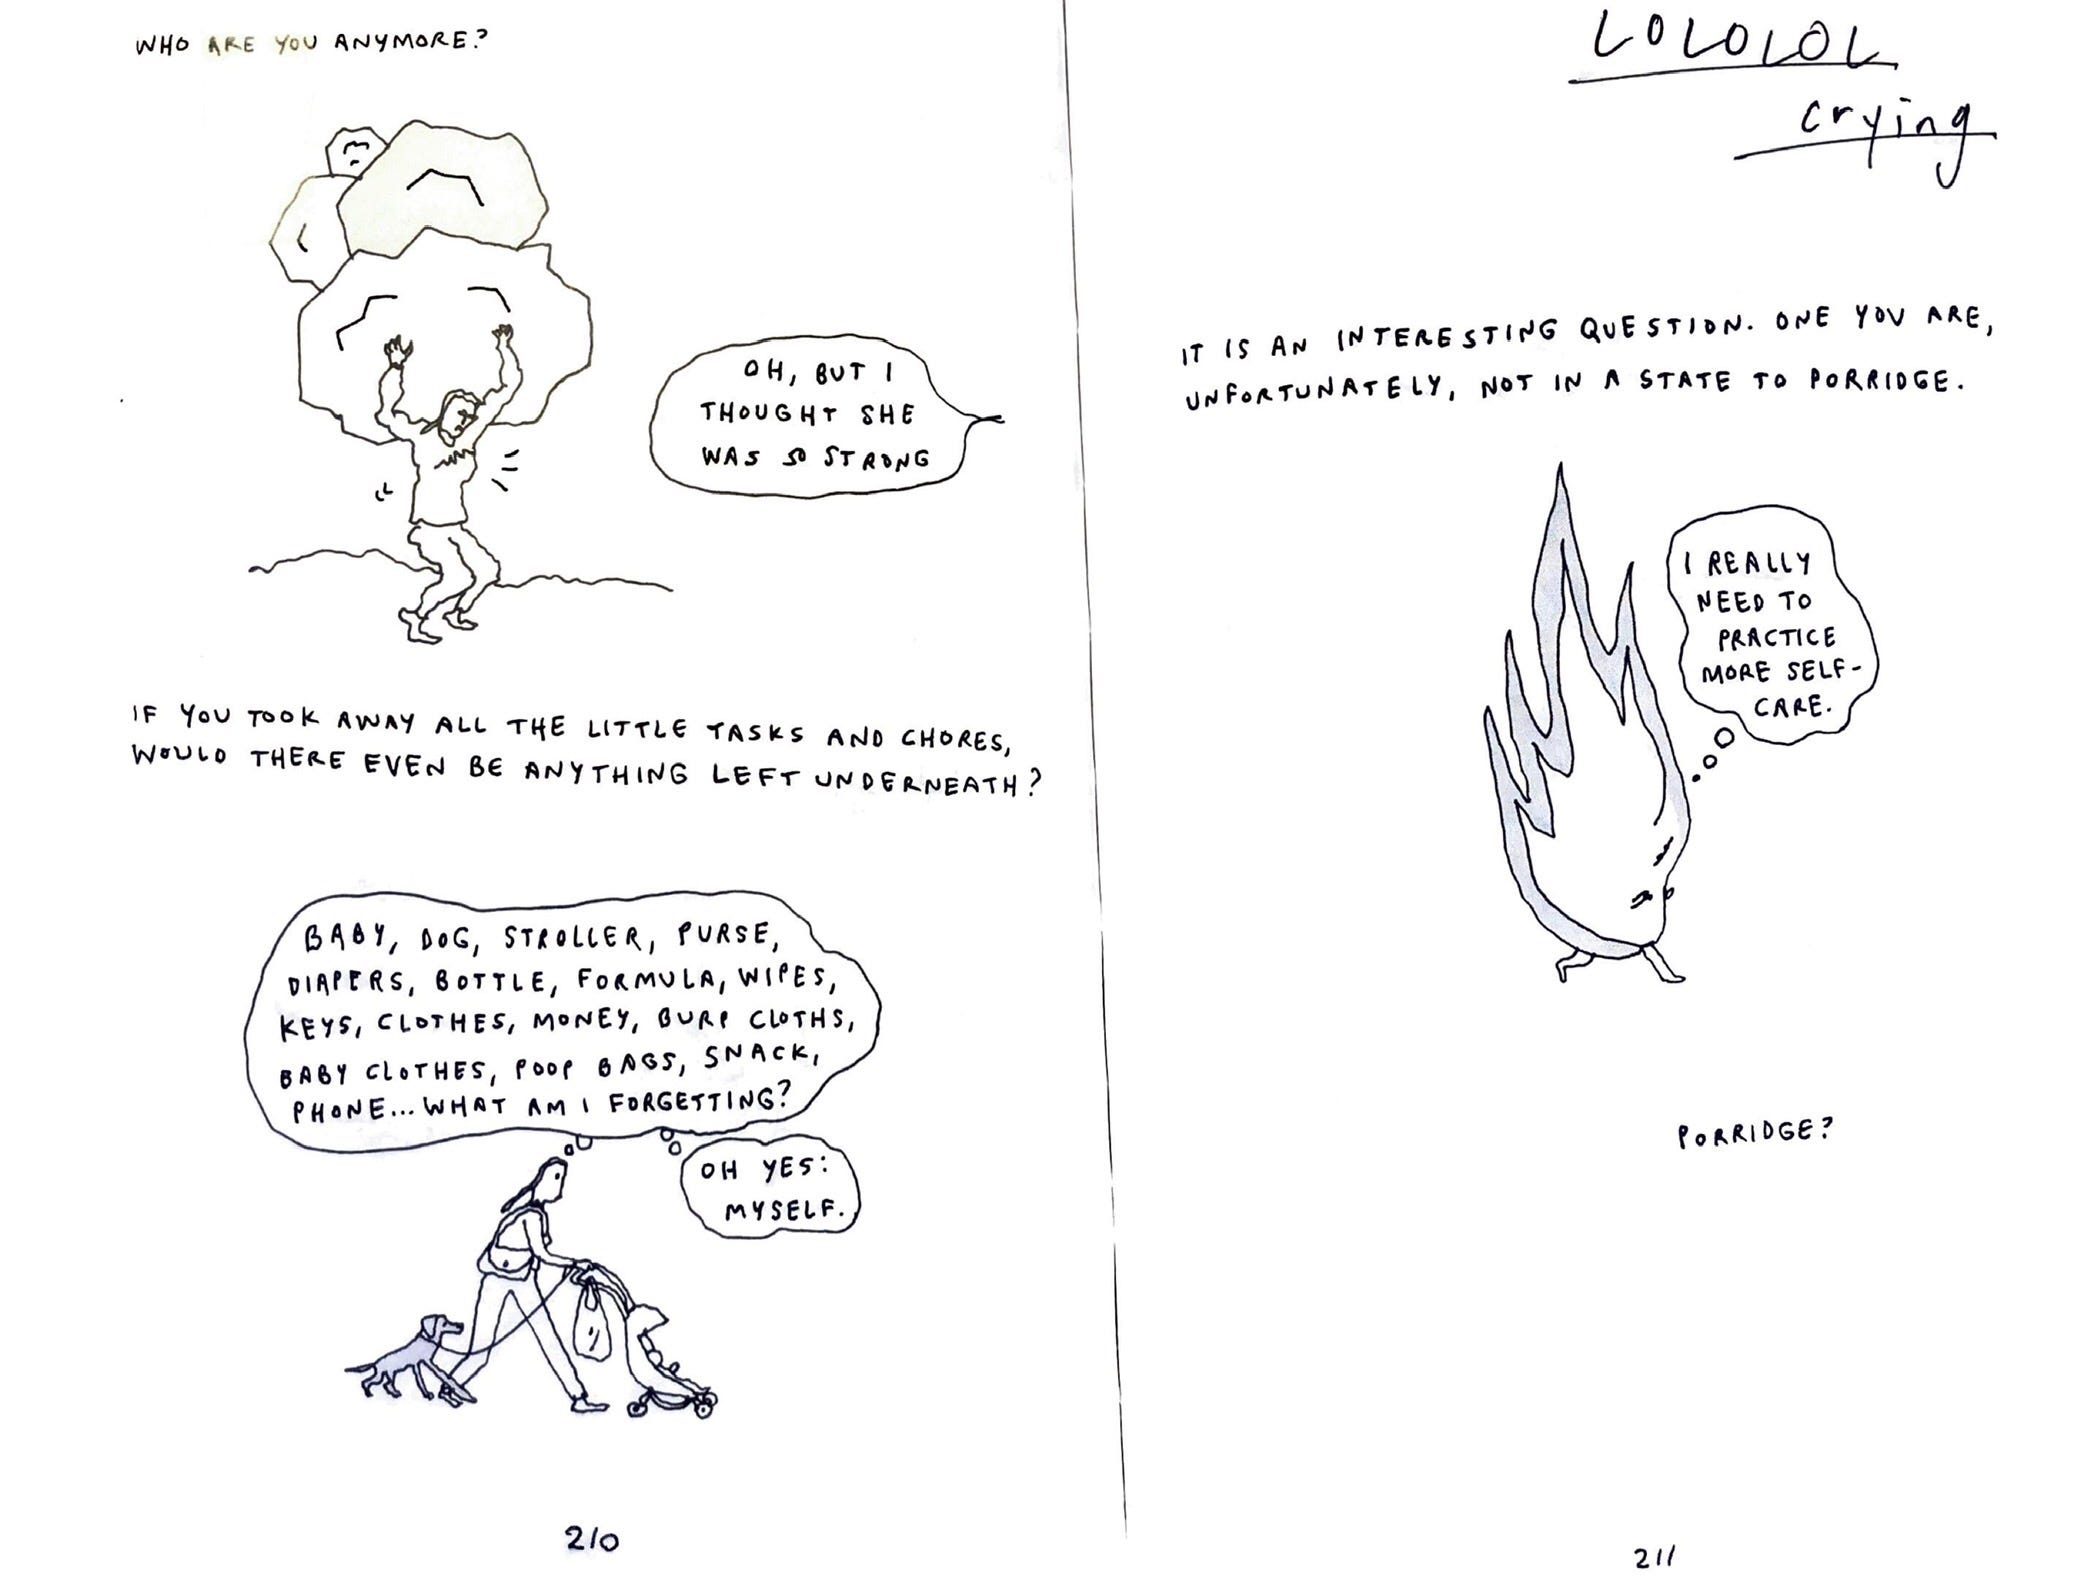 WHO ARE YOU ANYMORE?
OH, BUT I
THOUGHT SHE
WAS SO STRONG
IF YOU TOOK AWAY ALL THE LITTLE TASKS AND CHORES,
WOULD THERE EVEN BE ANYTHING LEFT UNDERNEATH?
BABY, DOG, STROLLER, PURSE,
DIAPERS, BOTTLE, FORMULA, WIPES,
KEYS, CLOTHES, MONEY, BURP CLOTHS,
BABY CLOTHES, POOP BAGS, SNACK,
PHONE... WHAT AM I FORGETTING?
OH YES:
MYSELF.
210
LOLOLOL
crying
IT IS AN INTERESTING QUESTION. ONE YOU ARE,
UNFORTUNATELY, NOT IN A STATE TO PORRIDGE.
I REALLY
NEED TO
PRACTICE
MORE SELF-
CARE.
PORRIDGE?
211